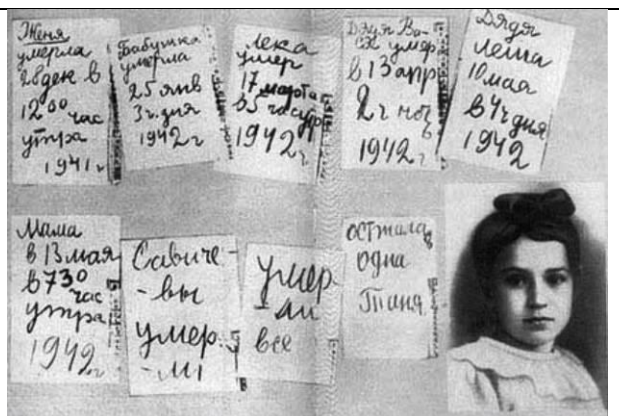 Женя
умерла
28 дек в
12 00 час
утра
1941 г
Бабушка
умерла
25 янв
3 ч. дня
1942 г
Лека
умер
17 марта
в 5 час ут
1942 г
Дядя Ва-
ся умер
в 13 апр
2 ч ноч
1942 г
Дядя
Леша
10 мая
в 4 ч дня
1942
Мама
в 13 мая
в 7 30
час
утра
1942 г
Савиче-
-вы
умер-
-ли
умер
-ли
все
осталась
одна
Таня